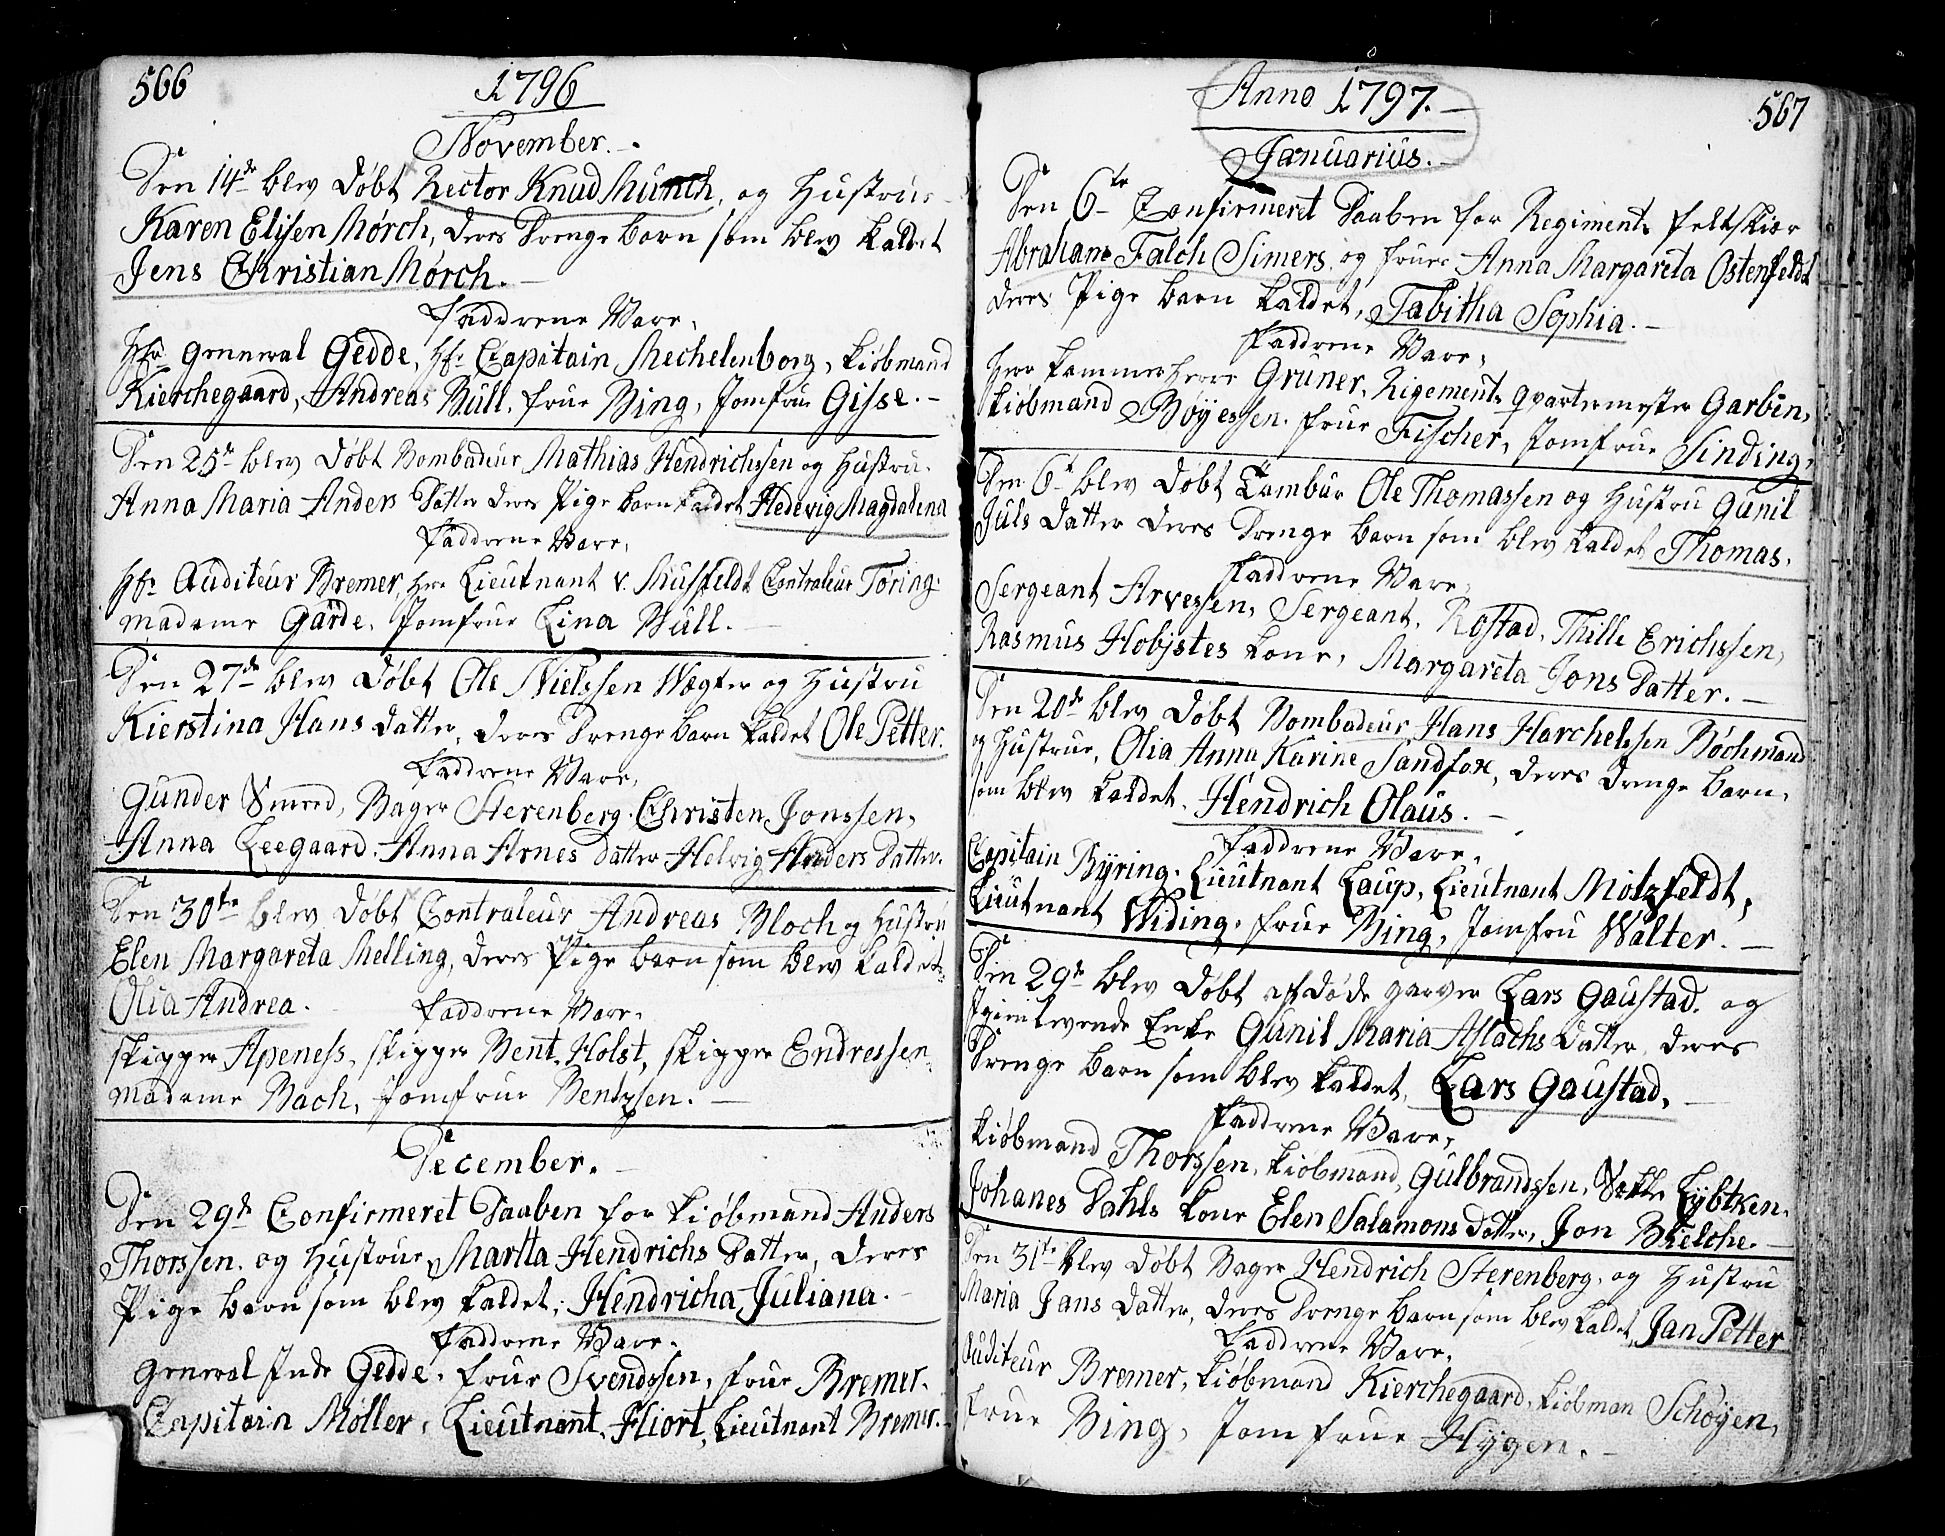 566
1796
November.
Den 14de blev Døbt Rector Knud Munch, og Hustrue
Karen Elisen Mørch, deres Drenge barn som blev kaldet
Jens Christian Mørch.
Faddrene Vare,
Hr. General Gedde, Hr. Capitain Mechelenborg, kiøbmand
Kierchegaard, Andreas Bull, frue Bing, Jomfrue Gisse.
Den 25de blev Døbt Bombadeur Mathias Hendrichssen og Hustru
Anna Maria Anders Datter deres Pige barn kaldet Hedevig Magdalena
Faddrene Vare,
Hr. Auditeur Bremer, Hr. Lieutnant v. Musfeldt Contraleur Tøring
Madame Garde, Jomfrue Lina Bull.
Den 27de blev Døbt Ole Nielssen Vægter og Hustru
Kierstina Hans Datter, deres Drenge barn kaldet Ole Petter.
Faddrene Vare,
Gunder Smed, Bager Sterenberg, Christen Jonssen,
Anna Leegaard, Anna Arnes datter Helvig Anders Datter.
Den 30te blev Døbt Contraleur Andreas Bloch og Hustru
Elen Margareta Melling, deres Pige barn som blev kaldet
Olia Andrea.
Faddrene Vare,
skipper Apeness, skipper Bent Holst, skipper Endressen
Madame Bach, Jomfrue Bentzsen.
December.
Den 29de Confirmeret Daaben for kiøbmand Anders
Thorssen og Hustrue Martta Hendrichs Datter, deres
Pige barn som blev kaldet, Hendricha Juliana.
Faddrene Vare,
General Inde Gedde, Frue Svendssen, frue Bremer,
Capitain Møller, Lieutnant Hiort, Lieutnant Bremer.
Anno 1797.
567
Januarius.
Den 6te Confirmeret Daaben for Regiments feltskiær
Abraham Falch Simers og frue Anna Margareta Ostenfeldt
deres Pige barn kaldet, Tabitha Sophia.
Faddrene Vare,
Herr kammerherre Gruner, Rigements qvartermester Garben,
kiøbmand Bøyessen, frue Fischer, Jomfrue Sinding,
Den 6te blev Døbt Tambur Ole Thomassen og Hustru Gunil
Juls Datter deres Drenge barn som blev kaldet Thomas.
Faddrene Vare,
Sergeant Arvessen, Sergeant Rostad, Thille Erichssen,
Rasmus Hobystes kone, Margareta Jons Datter.
Den 20de blev Døbt Bombadeur Hans Harchelssen Bøchmand
og Hustrue, Olia Anna Karine Sandfox, deres drenge barn,
som blev kaldet, Hendrich Olaus.
Faddrene Vare,
Capitain Byring, Lieutnant Laup, Lieutnant Motzfeldt,
Lieutnant Widing, frue Bing, Jomfru Walter.
Den 29de blev Døbt afdøde garver Lars Gaustad, og
Igienlevende Enke Gunil Maria Aslachs Datter, deres
Drenge barn som blev kaldet, Lars Gaustad.
Faddrene Vare,
kiøbmand Thorssen, kiøbmand Gulbrandssen, Lybtken,
Johanes Dahls kone Elen Salamons datter, Jon Bielche.
Den 31te blev Døbt Bager Hendrich Sterenberg, og Hustru
Maria Jans Datter, deres Drenge barn som blev kaldet, Jan Petter
Faddrene Vare,
Auditeur Bremer, kiøbmand Kierchegaard, kiøbman Schøyen,
frue Bing, Jomfrue Hygen.